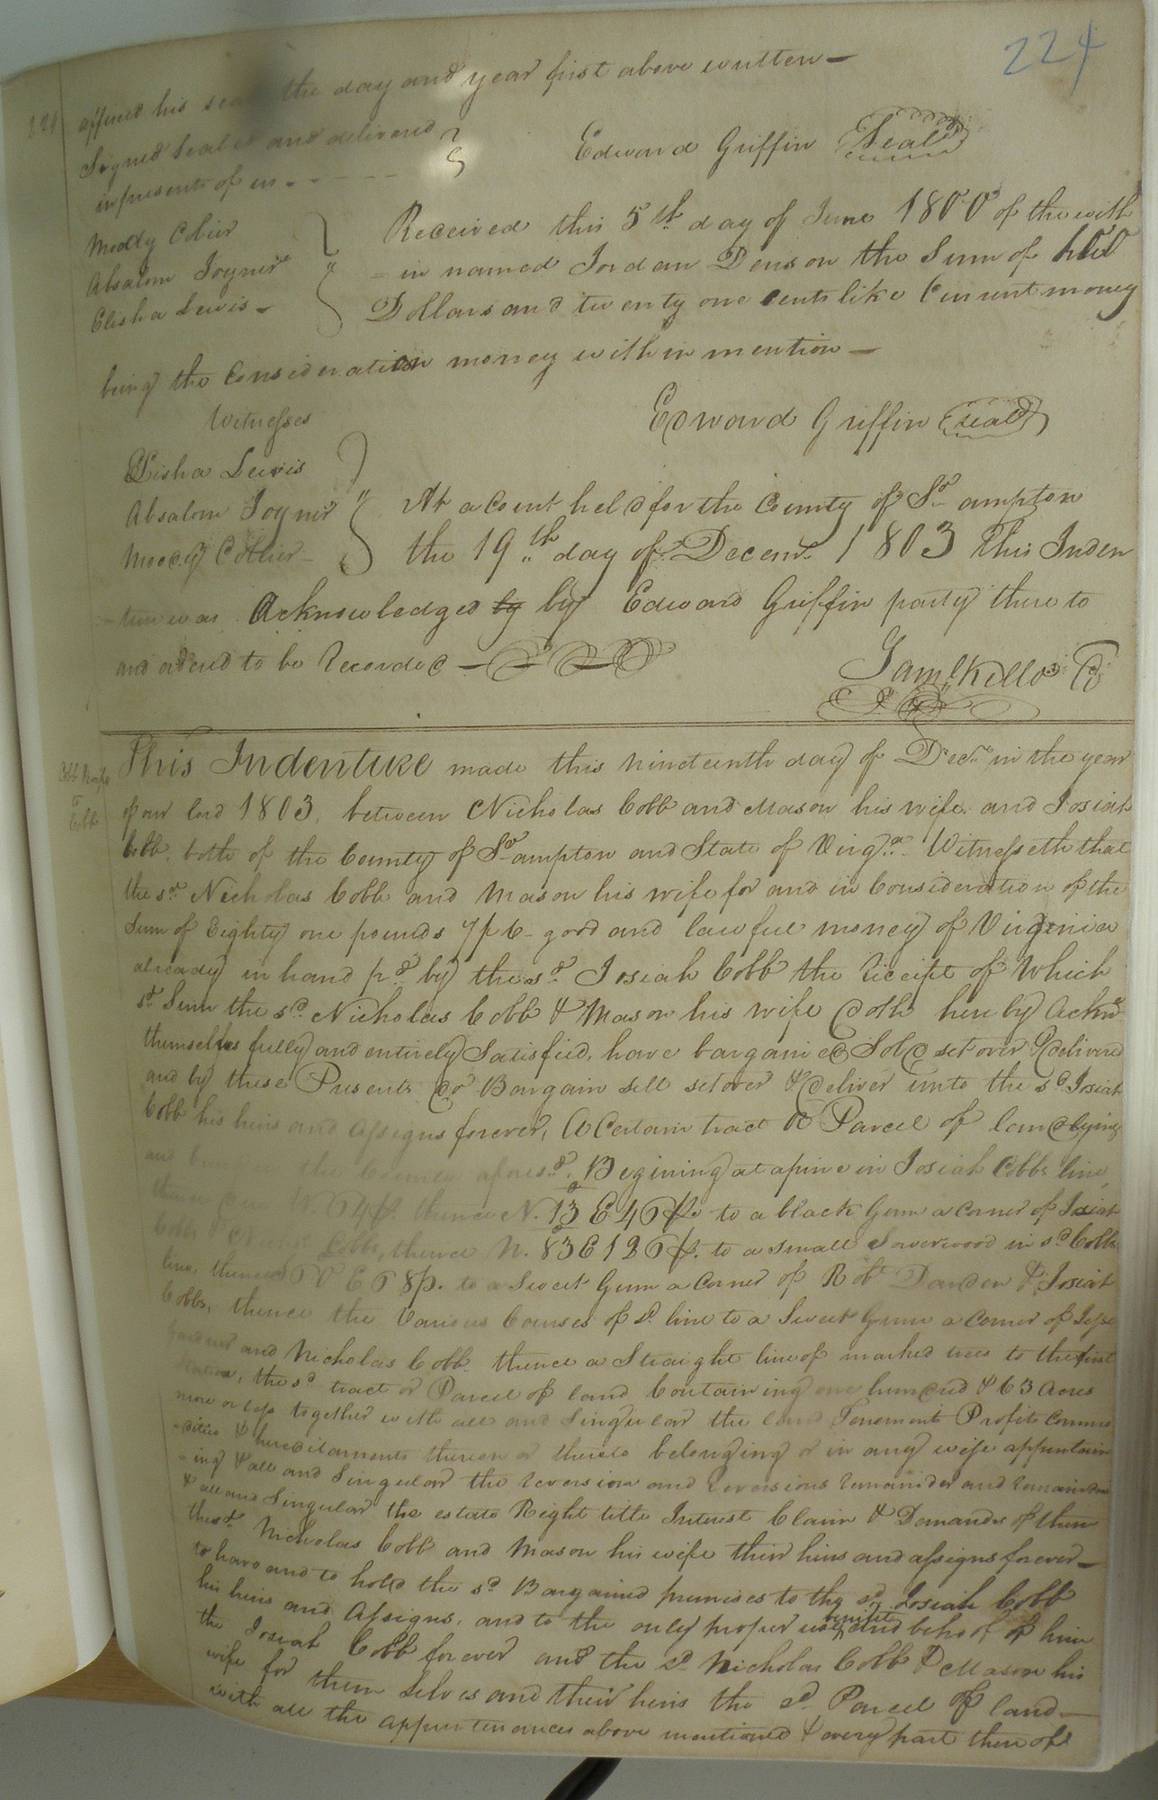 224
affixed his seal the day and year first above written —
Signed Sealed and delivered
in presents of us - - - - -
Edward Griffin Seal
Moody Colier
Absalom Joyner
Elisha Lewis -
Received this 5th day of June 1800 of the with
- in named Jordan Denson the Sum of
Dollars and twenty one cents like Current money
being the Consideration money within mention —
Witnesses
Edward Griffin Seal
Elisha Lewis
Absalom Joyner
Moody Collier -
At a Court held for the County of So.ampton
the 19th day of Decemr. 1803 This Inden
ture was Acknowledged by by Edward Griffin party there to
and ordered to be Recorded —
Saml Kello C
This Indenture made this nineteenth day of Decr. in the year
of our lord 1803, between Nicholas Cobb and Mason his wife and Josiah
Cobb, both of the County of So.ampton and State of Virga. Witnesseth that
the sd. Nicholas Cobb and Mason his wife for and in Consideration of the
Sum of Eighty one pounds 7/6 good and lawful money of Virginia
already in hand pd. by the sd. Josiah Cobb the Receipt of Which
sd. Sum the sd. Nicholas Cobb & Mason his wife doth hereby Ackn
themselves fully and entirely Satisfied, have bargained Sold set over & delivered
and by these Presents do Bargain sell set over & deliver unto the sd. Josiah
Cobb his heirs and assigns forever, A Certain tract or Parcel of land lying
and the County aforesd. Begining at a pine in Josiah Cobbs line
thence thence N. 13 E 46 p. to a black Gum a corner of Josiah
Cobb & Cobbs, thence N. 83 E 126 p. to a small Sowerwood in sd. Cobbs
line, thence E 68p. to a Sweet Gum a corner of Robt Darden & Josiah
Cobbs, thence the Various Courses of sd. line to a Sweet Gum a corner of Jesse
and Nicholas Cobb. thence a Straight line of marked trees to the first
Station, the sd. tract or Parcel of land Containing one hundred & 63 Acres
more or less together with all and Singular the land Tenements Profits Commo
-dities & hereditaments thereon or thereto belonging or in any wise appertain
- ing & all and Singular the reversion and Reversions Remainder and Remainders
& all and Singular the estate Right title Interest Claim & Demands of them
the sd. Nicholas Cobb and Mason his wife their heirs and assigns forever —
to have and to hold the sd. Bargained premises to the sd. Josiah Cobb
his heirs and Assigns, and to the only proper use, benefit and behoof of him
the Josiah Cobb forever and the sd. Nicholas Cobb & Mason his
wife for them selves and their heirs the sd. Parcel of land —
with all the appurtenances above mentioned & every part there of